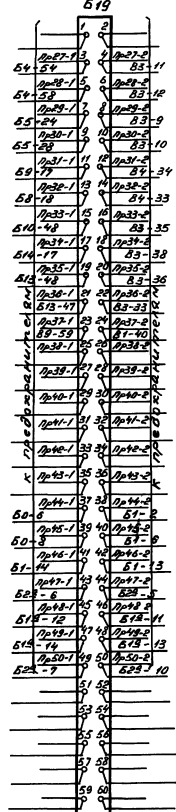 Б19
1 2
Пр27-1 3 4 Пр27-2
Б4-54 В3-11
Пр28-1 5 6 Пр28-2
Б4-58 В3-12
Пр29-1 7 8 Пр29-2
Б5-24 В3-9
Пр30-1 9 10 Пр30-2
Б5-28 В3-10
Пр31-1 11 12 Пр31-2
Б9-17 В4-34
Пр32-1 13 14 Пр32-2
Б8-18 В4-33
Пр33-1 15 16 Пр33-2
Б10-48 В3-35
Пр34-1 17 18 Пр34-2
Б14-17 В3-38
Пр35-1 19 20 Пр35-2
Б13-48 В3-36
Пр36-1 21 22 Пр36-2
Б13-47 В3-33
Пр37-1 23 24 Пр37-2
В9-59 Б1-40
Пр38-1 25 26 Пр38-2
Пр39-1 27 28 Пр39-2
Пр40-1 29 30 Пр40-2
Пр41-1 31 32 Пр41-2
Пр42-1 33 34 Пр42-2
Пр43-1 35 36 Пр43-2
Пр44-1 37 38 Пр44-2
Б0-6 Б1-2
Пр45-1 39 40 Пр45-2
Б0-8 Б1-6
Пр46-1 41 42 Пр46-2
Б1-14 Б1-13
Пр47-1 43 44 Пр47-2
Б29-6 Б29-5
Пр48-1 45 46 Пр48-2
Б19-12 Б19-11
Пр49-1 47 48 Пр49-2
Б19-14 Б19-13
Пр50-1 49 50 Пр50-2
Б29-7 Б29-10
51 52
53 54
55 56
57 58
59 60
к предохранителям
к предохранителям